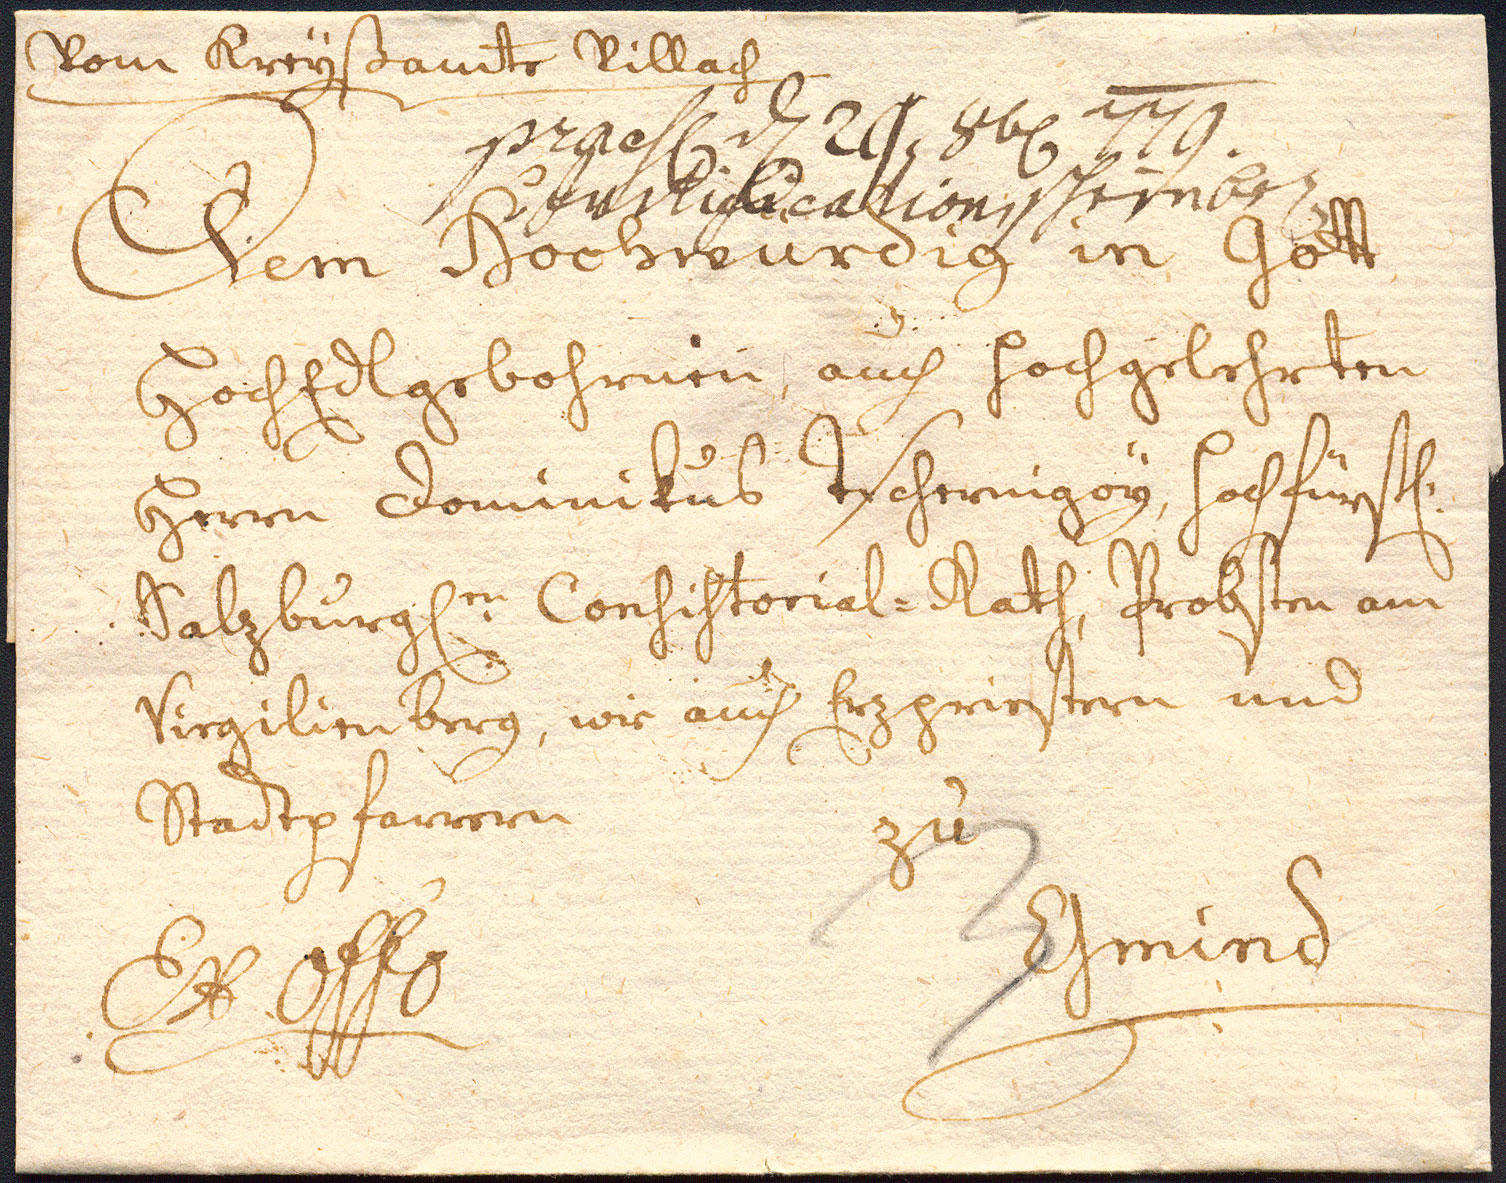 Vom Kreÿßamte Villach
praes. d. 29. 8b. 1779.
Dem Hochwürdig in Gott
HochEdlgebohrnen, auch hochgelehrten
Herrn Dominikus Tschernigoÿ, hochfürstl.
Salzburgl.en Consistorial=Rath, Probsten am
Virgilienberg, wie auch Erzpriestern und
Stadtpfarrern
zu
Ex Offo
Gmünd